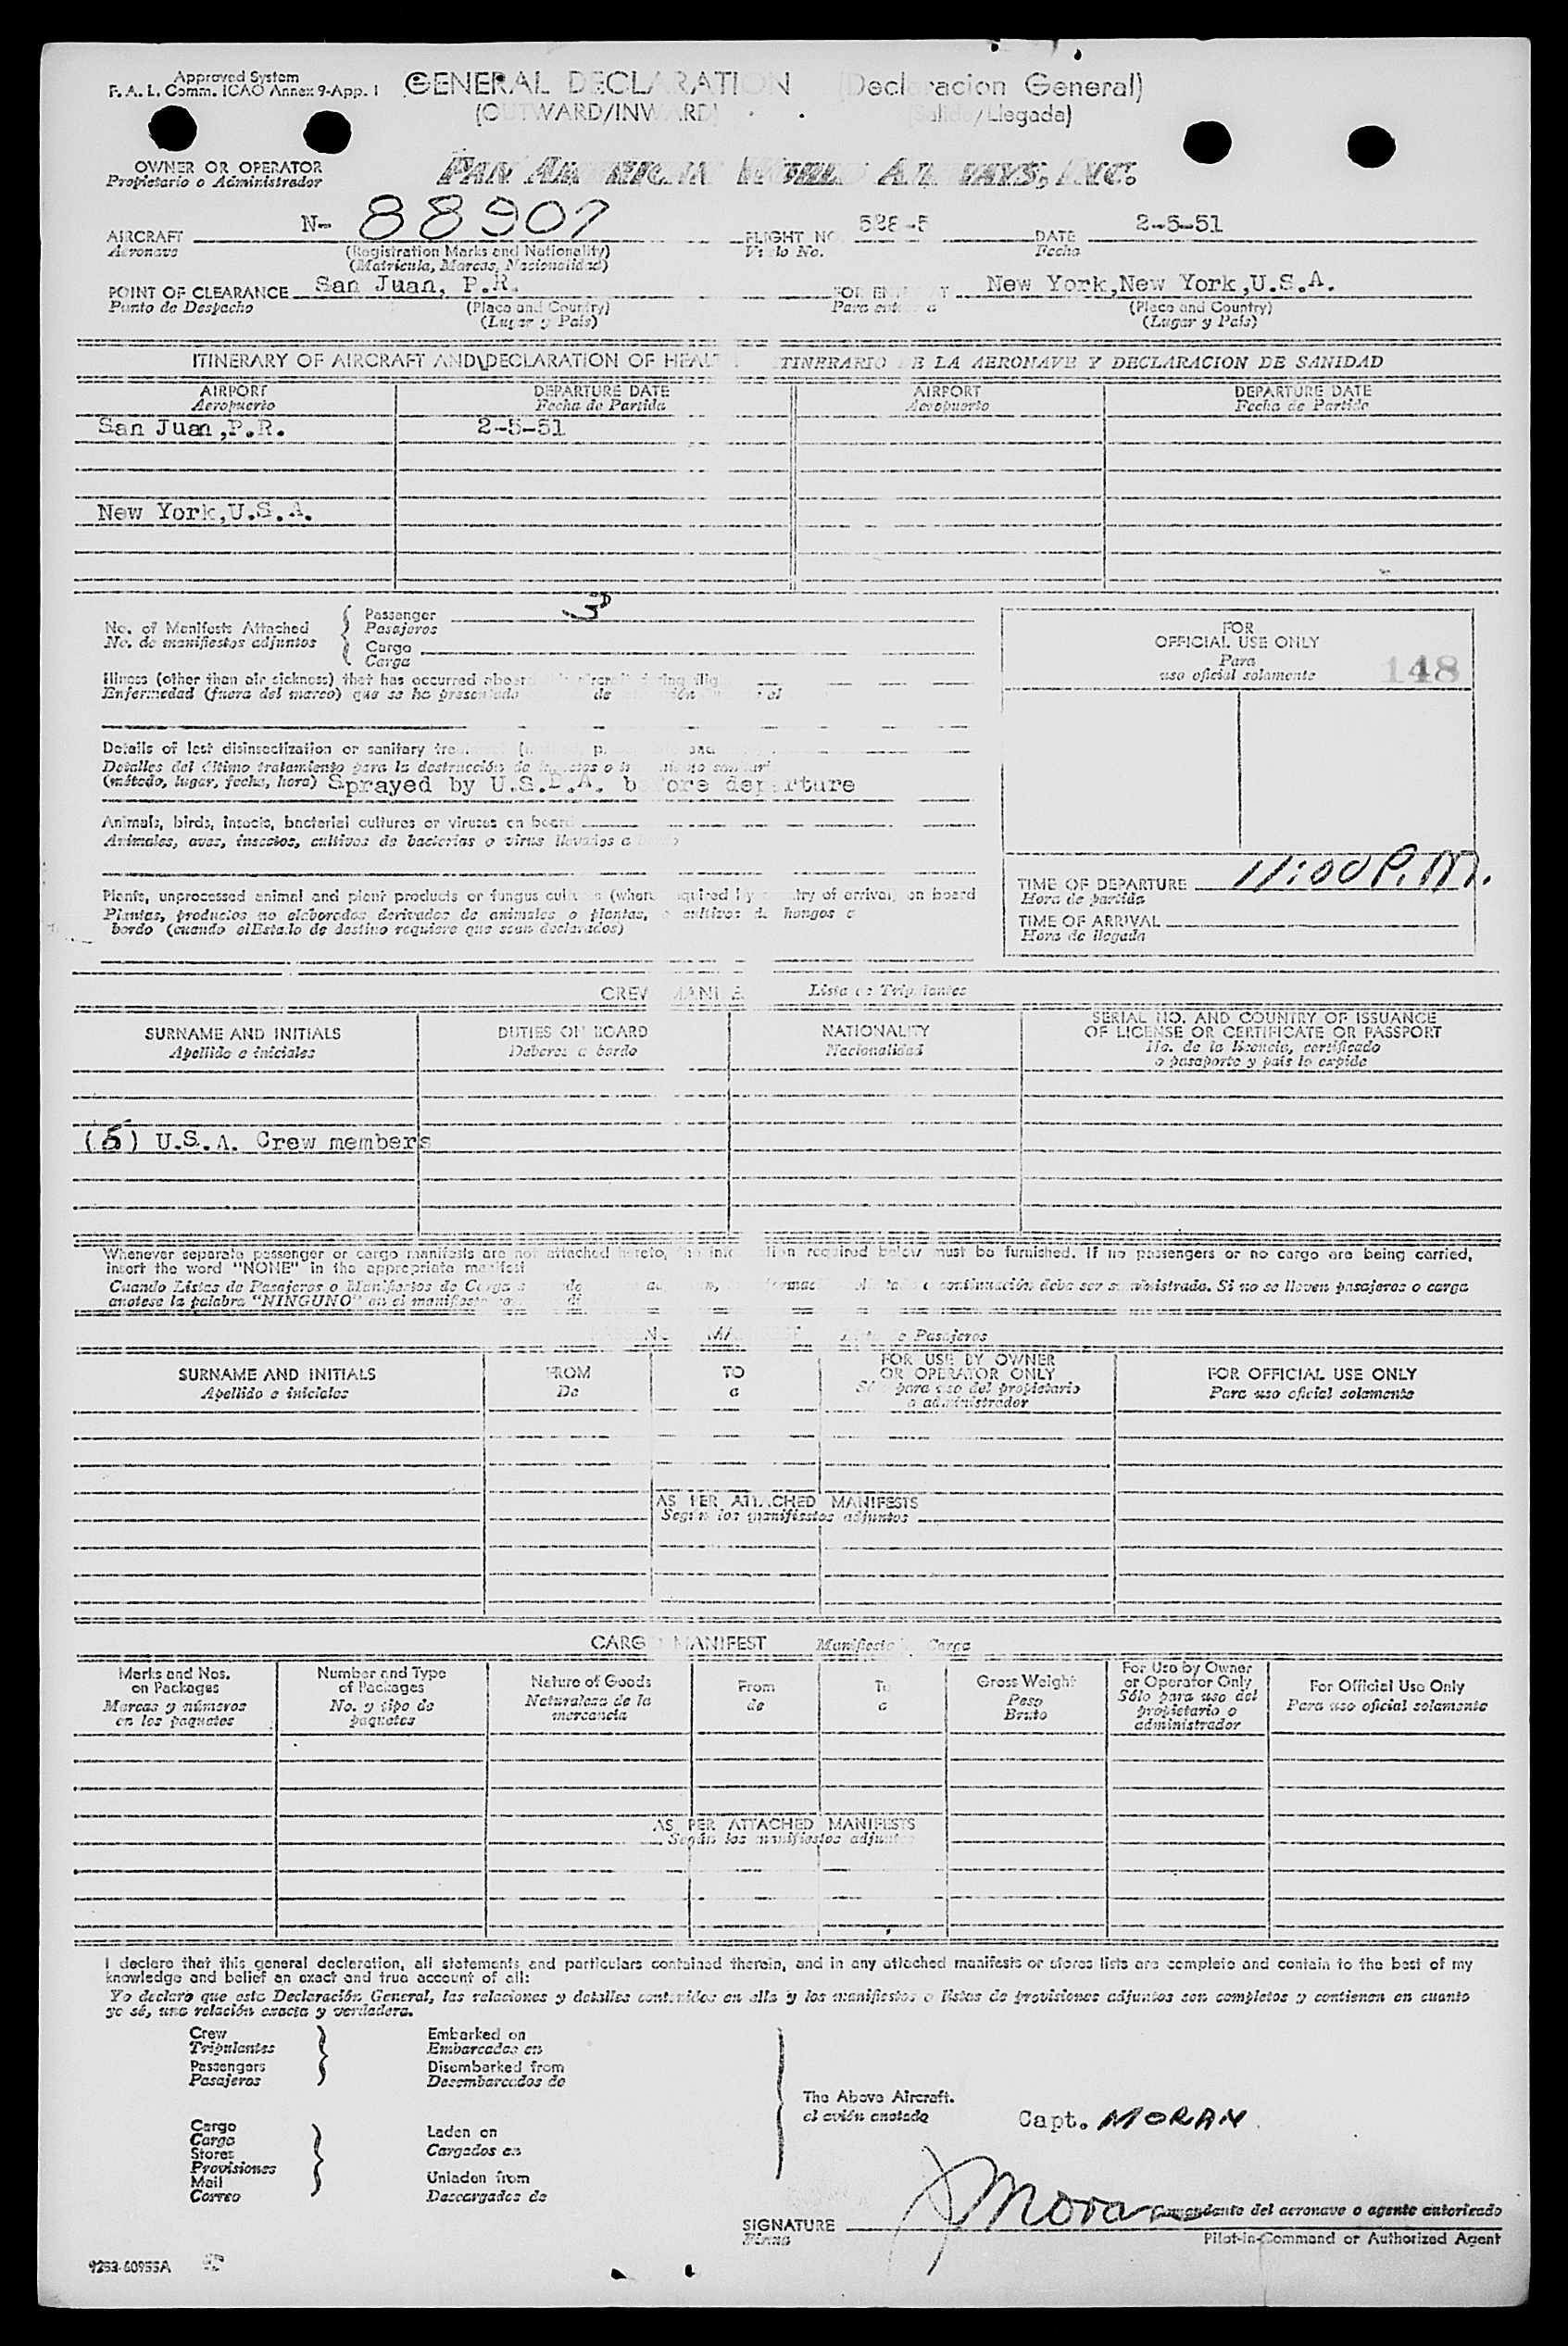 Approved System
F. A. L. Comm. ICAO Annex 9-App. I
GENERAL DECLARATION (Declaracion General)
(OUTWARD/INWARD) (Salida/Llegada)
OWNER OR OPERATOR
Propietario o Administrador
PAN AMERICAN WORLD AIRWAYS, INC.
AIRCRAFT N- 88907 FLIGHT NO. 528-5 DATE 2-5-51
Aeronave (Registration Marks and Nationality) Vuelo No. Fecha
(Matricula, Marcas, Nacionalidad)
POINT OF CLEARANCE San Juan, P.R. FOR ENTRY New York,New York,U.S.A.
Punto de Despacho (Place and Country) Para entrada (Place and Country)
(Lugar y Pais) (Lugar y Pais)
ITINERARY OF AIRCRAFT AND DECLARATION OF HEALTH ITINERARIO DE LA AERONAVE Y DECLARACION DE SANIDAD
AIRPORT DEPARTURE DATE AIRPORT DEPARTURE DATE
Aeropuerto Fecha de Partida Aeropuerto Fecha de Partida
San Juan,P.R. 2-5-51
New York,U.S.A.
No. of Manifests Attached
No. de manifiestos adjuntos
Passenger 3
Pasajeros
Cargo
Carga
FOR
OFFICIAL USE ONLY
Para
uso oficial solamente
148
Illness (other than air sickness) that has occurred aboard aircraft during
Enfermedad (fuera del mareo) que se ha presentado de el
Details of last disinsectization or sanitary and
Detalles del último tratamiento para la destrucción de insectos o
(método, lugar, fecha, hora) Sprayed by U.S.D.A. before departure
Animals, birds, insects, bacterial cultures or viruses on board
Animales, aves, insectos, cultivos de bacterias o virus llevados a bordo
Plants, unprocessed animal and plant products or fungus cultures (where required by country of arrival) on board
Plantas, productos no elaborados derivados de animales o plantas, o cultivos de hongos a
bordo (cuando el Estado de destino requiere que sean declarados)
TIME OF DEPARTURE 11:00 P.M.
Hora de partida
TIME OF ARRIVAL
Hora de llegada
CREW MANIFEST Lista de Tripulantes
SURNAME AND INITIALS DUTIES ON BOARD NATIONALITY SERIAL NO. AND COUNTRY OF ISSUANCE
OF LICENSE OR CERTIFICATE OR PASSPORT
Apellido e iniciales Deberes a bordo Nacionalidad No. de la licencia, certificado
o pasaporte y pais lo expide
(5) U.S.A. Crew members
Whenever separate passenger or cargo manifests are not attached hereto, the information required below must be furnished. If no passengers or no cargo are being carried,
insert the word "NONE" in the appropriate manifest
Cuando Listas de Pasajeros o Manifiestos de Carga a continuación debe ser suministrada. Si no se lleven pasajeros o carga
anotese la palabra "NINGUNO" en el manifiesto
PASSENGER MANIFEST Lista de Pasajeros
SURNAME AND INITIALS FROM TO FOR USE BY OWNER
OR OPERATOR ONLY FOR OFFICIAL USE ONLY
Apellido e iniciales De a Sólo para uso del propietario
o administrador Para uso oficial solamente
AS PER ATTACHED MANIFESTS
Según los manifiestos adjuntos
CARGO MANIFEST Manifiesto de Carga
Marks and Nos.
on Packages
Marcas y números
en los paquetes
Number and Type
of Packages
No. y tipo de
paquetes
Nature of Goods
Naturaleza de la
mercancia
From
de
To
a
Gross Weight
Peso
Bruto
For Use by Owner
or Operator Only
Sólo para uso del
propietario o
administrador
For Official Use Only
Para uso oficial solamente
AS PER ATTACHED MANIFESTS
Según los manifiestos adjuntos
I declare that this general declaration, all statements and particulars contained therein, and in any attached manifests or stores lists are complete and contain to the best of my
knowledge and belief an exact and true account of all:
Yo declaro que esta Declaración General, las relaciones y detalles contenidos en ella y los manifiestos o listas de provisiones adjuntos son completos y contienen en cuanto
yo sé, una relación exacta y verdadera.
Crew
Tripulantes
Passengers
Pasajeros
Embarked on
Embarcados en
Disembarked from
Desembarcados de
Cargo
Carga
Stores
Provisiones
Mail
Correo
Laden on
Cargados en
Unladen from
Descargados de
The Above Aircraft.
el avión anotado
Capt. MORAN
SIGNATURE Moran Comandante del aeronave o agente autorizado
Firma Pilot-in-Command or Authorized Agent
9253-60955A